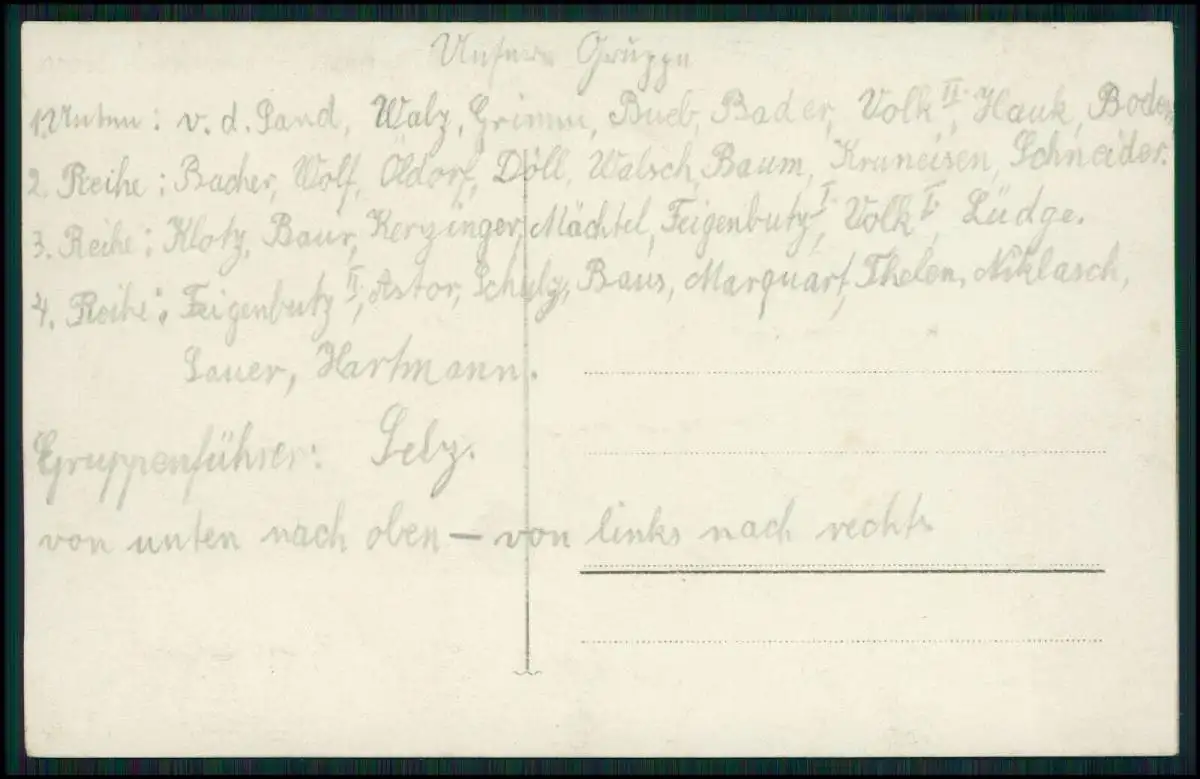 Unsere Gruppe
1. Unten: v. d. Sand, Walz, Grimm, Bueb, Bader, Volk II, Hauk, Boden,
2. Reihe: Bacher, Wolf, Oldorf, Döll, Walsch, Baum, Kruneisen, Schneider.
3. Reihe: Klotz, Baur, Kerzinger, Mächtel, Feigenbutz I, Volk I, Lüdge.
4. Reihe: Feigenbutz II, Astor, Schulz, Baus, Marquart, Thelen, Niklasch,
Sauer, Hartmann.
Gruppenführer: Selz.
von unten nach oben – von links nach rechts